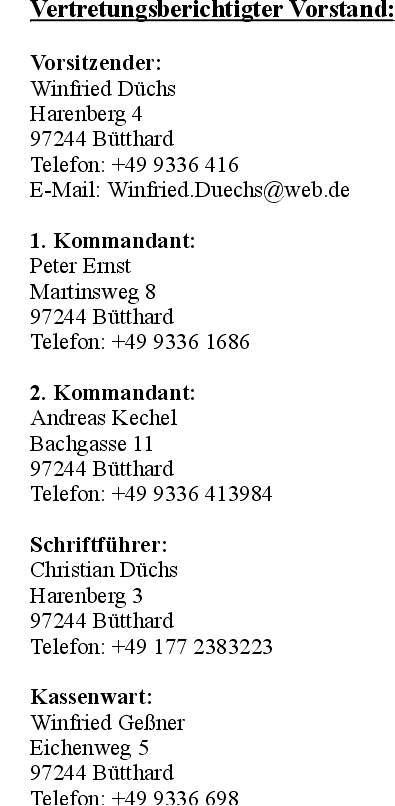 Vertretungsberichtigter Vorstand:
Vorsitzender:
Winfried Düchs
Harenberg 4
97244 Bütthard
Telefon: +49 9336 416
E-Mail: Winfried.Duechs@web.de
1. Kommandant:
Peter Ernst
Martinsweg 8
97244 Bütthard
Telefon: +49 9336 1686
2. Kommandant:
Andreas Kechel
Bachgasse 11
97244 Bütthard
Telefon: +49 9336 413984
Schriftführer:
Christian Düchs
Harenberg 3
97244 Bütthard
Telefon: +49 177 2383223
Kassenwart:
Winfried Geßner
Eichenweg 5
97244 Bütthard
Telefon: +49 9336 698